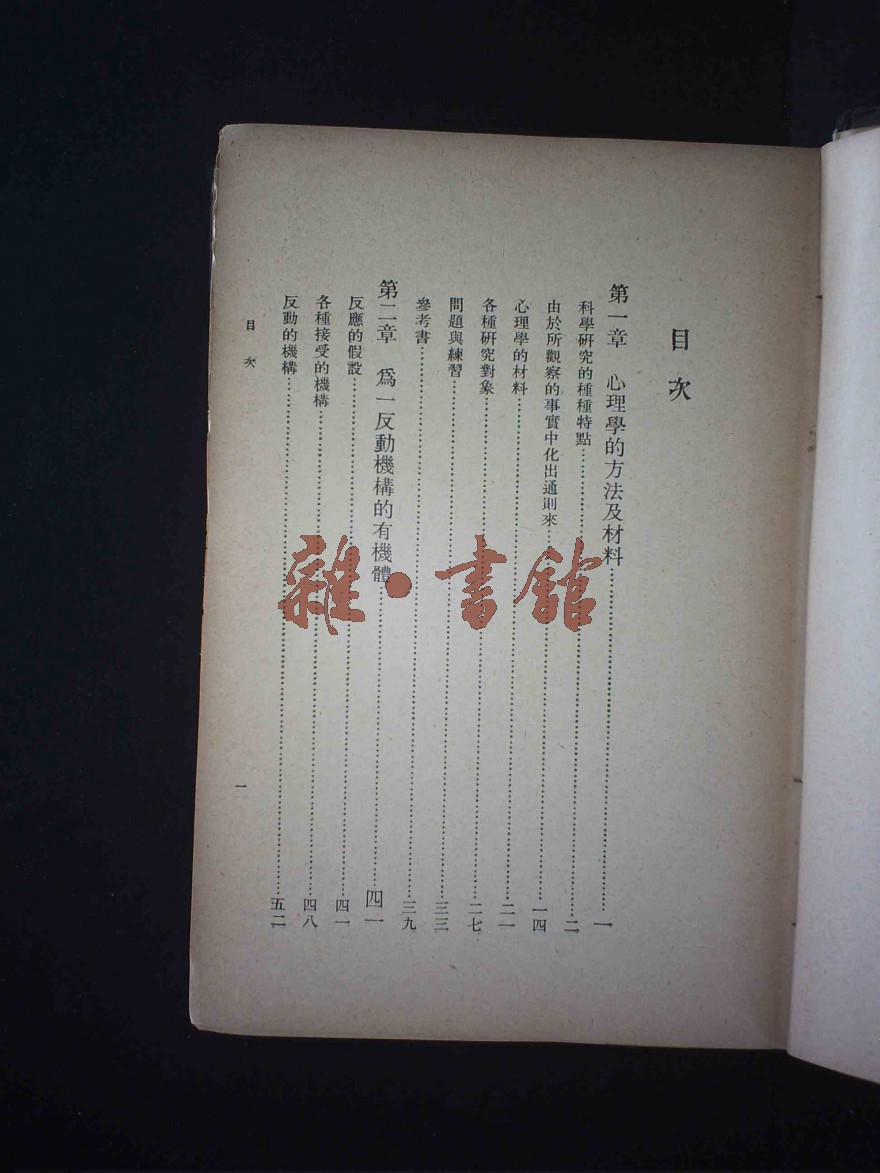 目次
第一章 心理學的方法及材料……一
科學研究的種種特點……二
由於所觀察的事實中化出通則來……一四
心理學的材料……二一
各種研究對象……二七
問題與練習……三三
參考書……三九
第二章 爲一反動機構的有機體……四一
反應的假設……四一
各種接受的機構……四八
反動的機構……五二
目次
一
雜·書館